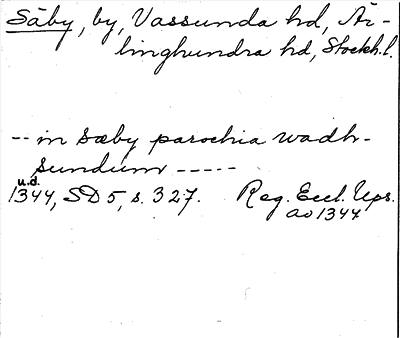 Säby, by, Vassunda hd, Är-
linghundra hd, Stockh.l.
-- in sæby parochia wadh-
sundum -----
u.d.
1344, SD 5, s. 327. Reg. Eccl. Ups.
ao 1344